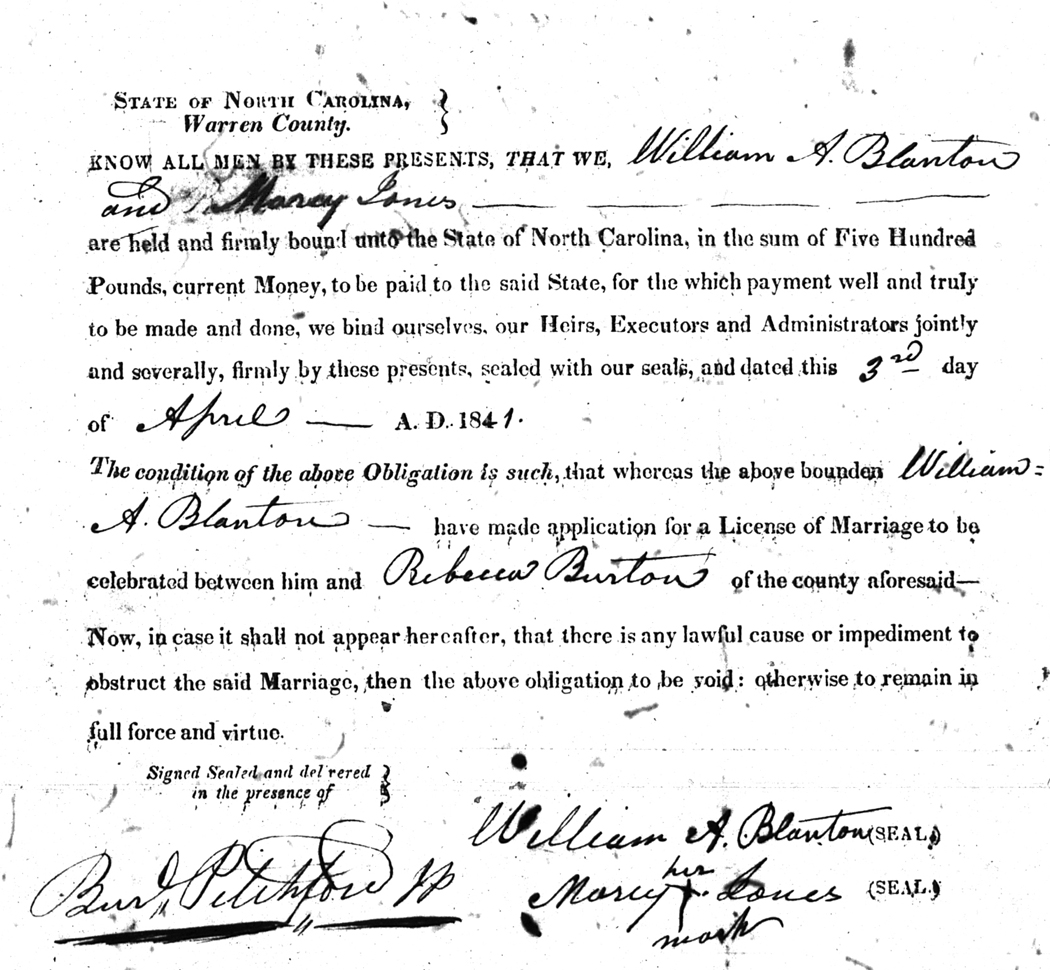 STATE OF NORTH CAROLINA,
Warren County.
KNOW ALL MEN BY THESE PRESENTS, THAT WE, William A. Blanton
and Marcy Jones
are held and firmly bound unto the State of North Carolina, in the sum of Five Hundred
Pounds, current Money, to be paid to the said State, for the which payment well and truly
to be made and done, we bind ourselves, our Heirs, Executors and Administrators jointly
and severally, firmly by these presents, sealed with our seals, and dated this 3rd day
of April — A. D. 1841.
The condition of the above Obligation is such, that whereas the above bounden William=
A. Blanton — have made application for a License of Marriage to be
celebrated between him and Rebecca Burton of the county aforesaid—
Now, in case it shall not appear hereafter, that there is any lawful cause or impediment to
obstruct the said Marriage, then the above obligation to be void: otherwise to remain in
full force and virtue.
Signed Sealed and delivered
in the presence of
William A. Blanton (SEAL.)
her
Marcy Jones (SEAL.)
mark
Pitchford JP